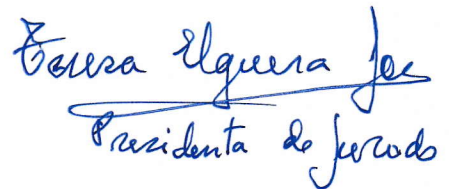 Teresa Elguera
Presidenta de Jurado